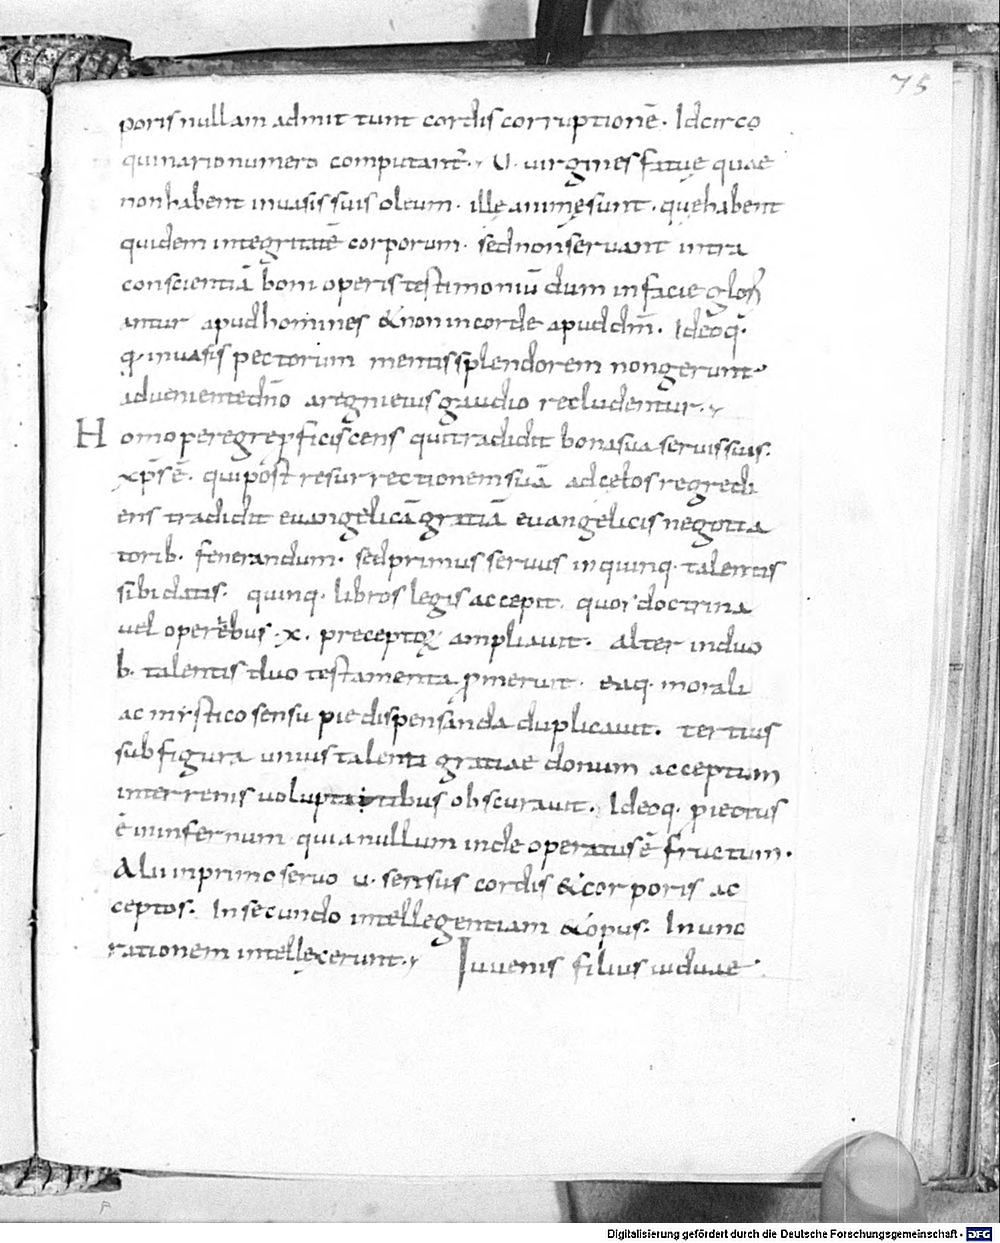 75
poris nullam admittunt cordis corruptionē. Idcirco
quinario numero computant̄. U. virgines fatuę quae
non habent in vasis suis oleum. illę animę sunt. quę habent
quidem integritatē corporum. sed non servant intra
conscientiā boni operis testimoniū dum in facie glori
antur apud homines & non in corde apud dm̄. Ideoq.
q. in vasis pectorum mentis splendorem non gerunt
adveniente dn̄o a regni eius gaudio recludentur.
Homo peregre pficiscens qui tradidit bona sua servis suis.
xp̄s ē. qui post resurrectionem suā ad cęlos regredi
ens tradidit euangelicā gratiā euangelicis negotia
torib. fenerandum. sed primus servus in quinq. talentis
sibi datis. quinq. libros legis accepit. quos doctrina
vel operebus .x. preceptoꝝ ampliavit. Alter in duo
b. talentis duo testamenta ꝓmeruit. eaq. morali
ac mystico sensu pie dispensanda duplicavit. tertius
sub figura unius talenti gratiae donum acceptum
in terrenis voluptatibus obscuravit. Ideoq. piectus
ē in infernum quia nullum inde operatus ē fructum.
Alii in primo servo u. sensus cordis & corporis ac
ceptos. In secundo intellegentiam & opus. In uno
rationem intellexerunt. Iuvenis filius viduae
Digitalisierung gefördert durch die Deutsche Forschungsgemeinschaft - DFG